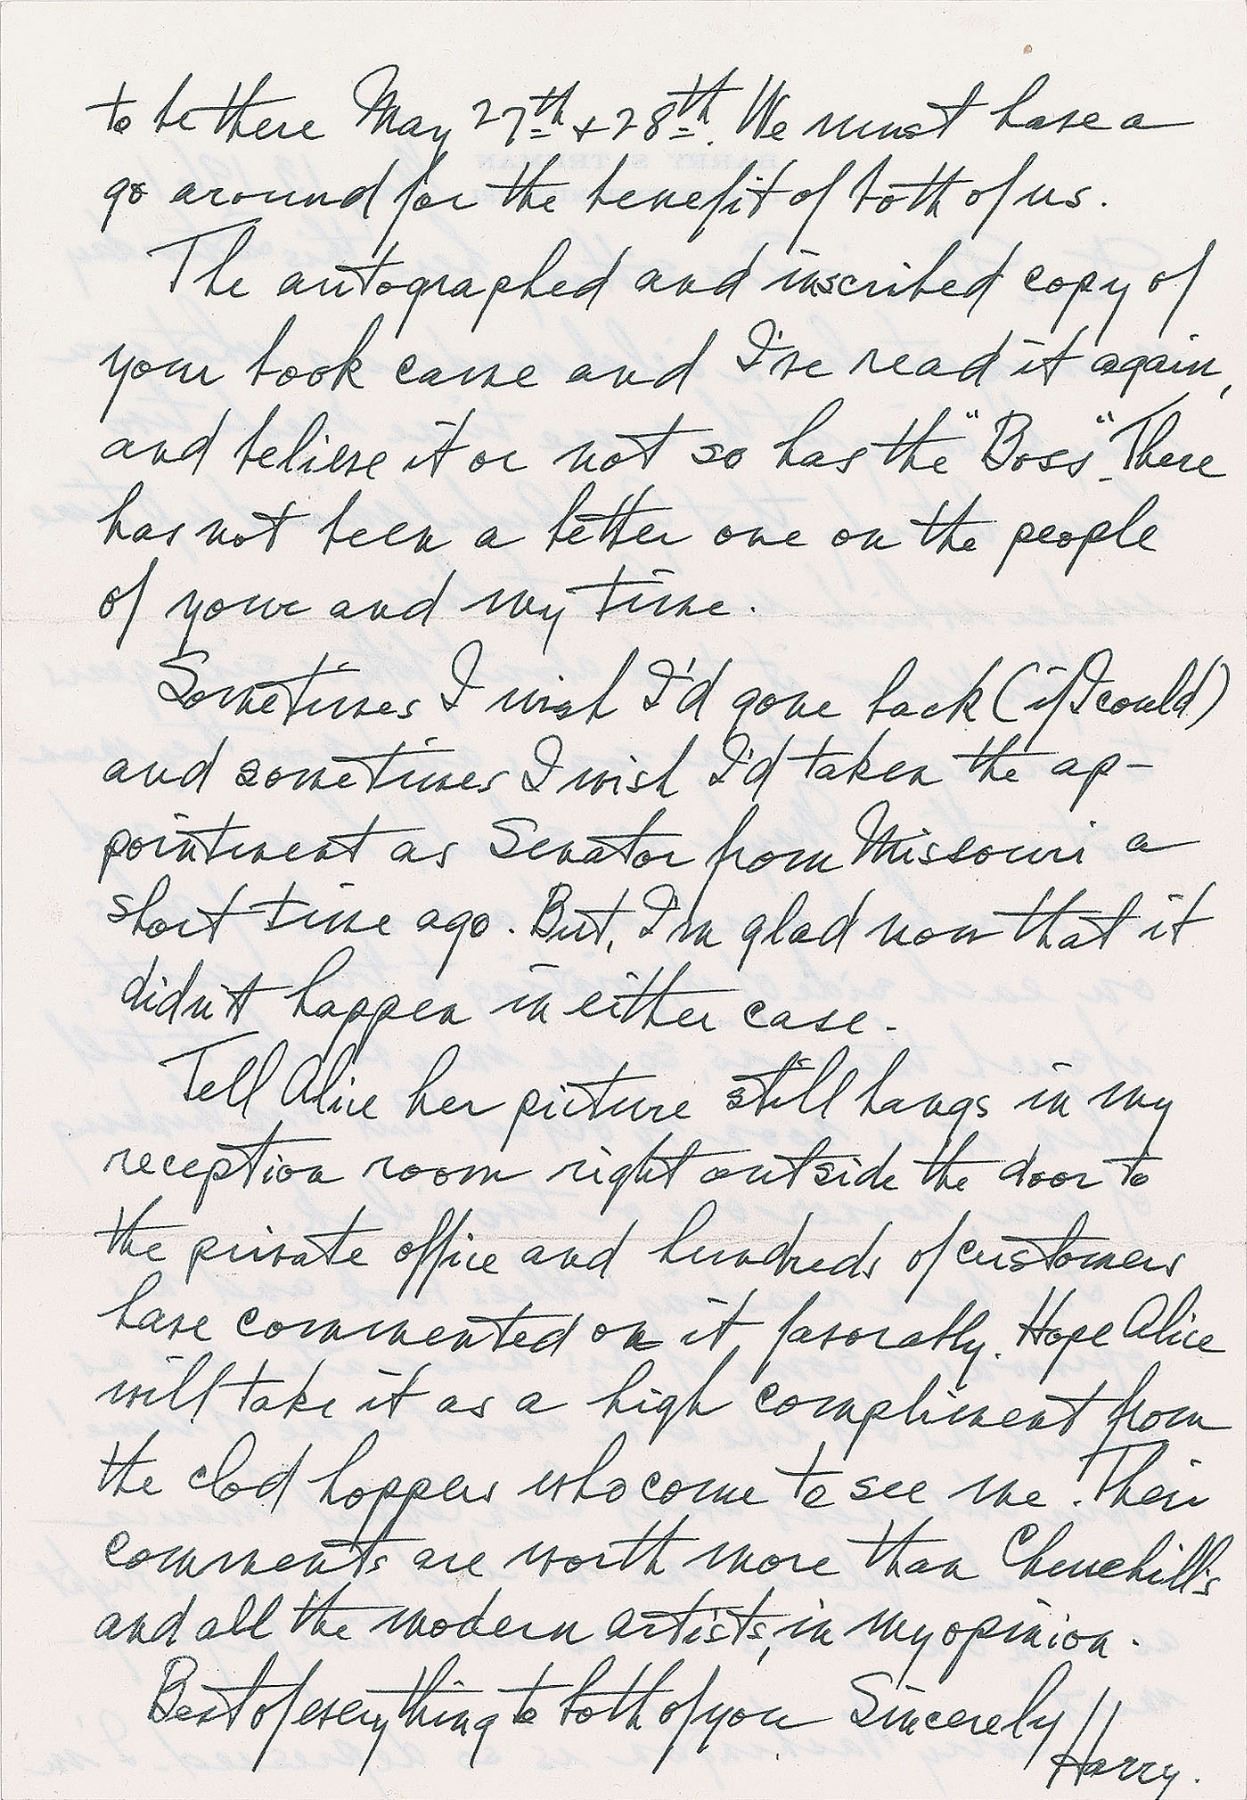 to be there May 27th + 28th. We must have a
go around for the benefit of both of us.
The autographed and inscribed copy of
your book came and I've read it again,
and believe it or not so has the "Boss". There
has not been a better one on the people
of your and my time.
Sometimes I wish I'd gone back (if I could)
and sometimes I wish I'd taken the ap-
pointment as Senator from Missouri a
short time ago. But, I'm glad now that it
didn't happen in either case.
Tell Alice her picture still hangs in my
reception room right outside the door to
the private office and hundreds of customers
have commented on it, favorably. Hope Alice
will take it as a high compliment from
the clod hoppers who come to see me. Their
comments are worth more than Churchill's
and all the modern artists, in my opinion.
Best of everything to both of you Sincerely
Harry.